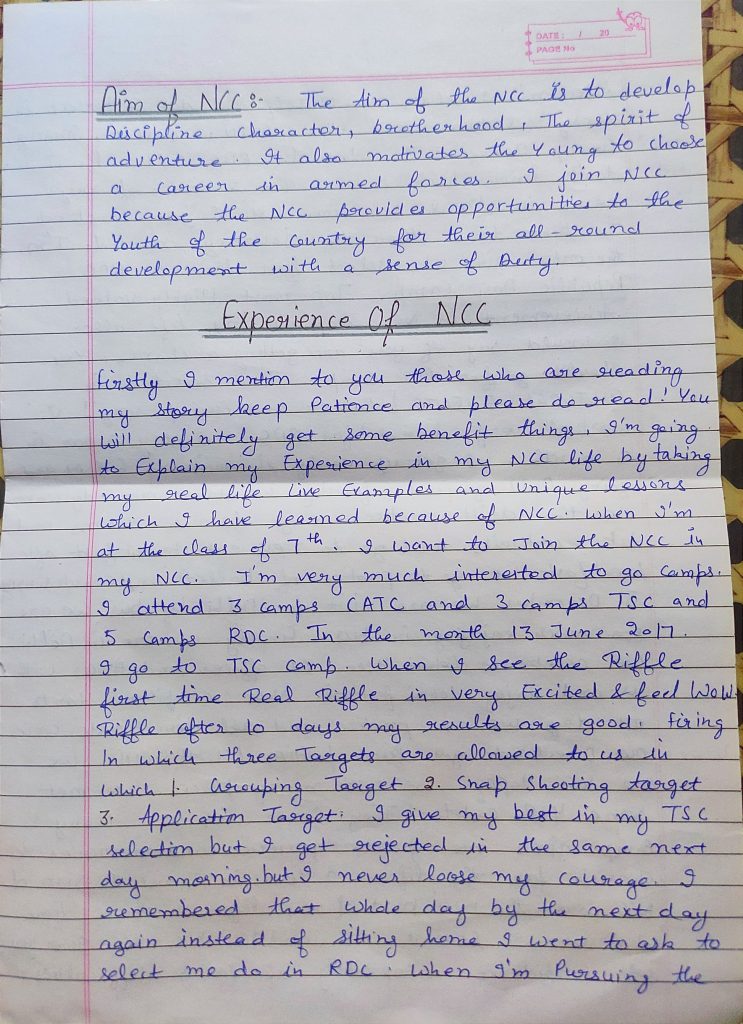 DATE: / 20
PAGE No
Aim of NCC :- The Aim of the NCC is to develop
Discipline character, brotherhood, The spirit of
adventure. It also motivates the Young to choose
a career in armed forces. I join NCC
because the NCC provides opportunities to the
Youth of the Country for their all-round
development with a sense of Duty.
Experience Of NCC
firstly I mention to you those who are reading
my story keep Patience and please do read! You
will definitely get some benefit things, I'm going
to Explain my Experience in my NCC life by taking
my real life Live Examples and Unique lessons
which I have learned because of NCC. When I'm
at the class of 7th. I want to Join the NCC in
my NCC. I'm very much interested to go Camps.
I attend 3 camps CATC and 3 camps TSC and
5 Camps RDC. In the month 13 June 2017.
I go to TSC camp. When I see the Riffle
first time Real Riffle in very Excited & feel WoW
Riffle after 10 days my results are good. firing
In which three Targets are allowed to us in
which 1. Grouping Target 2. Snap Shooting target
3. Application Target. I give my best in my TSC
selection but I get rejected in the same next
day morning. but I never loose my courage. I
remembered that whole day by the next day
again instead of sitting home I went to ask to
select me do in RDC. When I'm Pursuing the